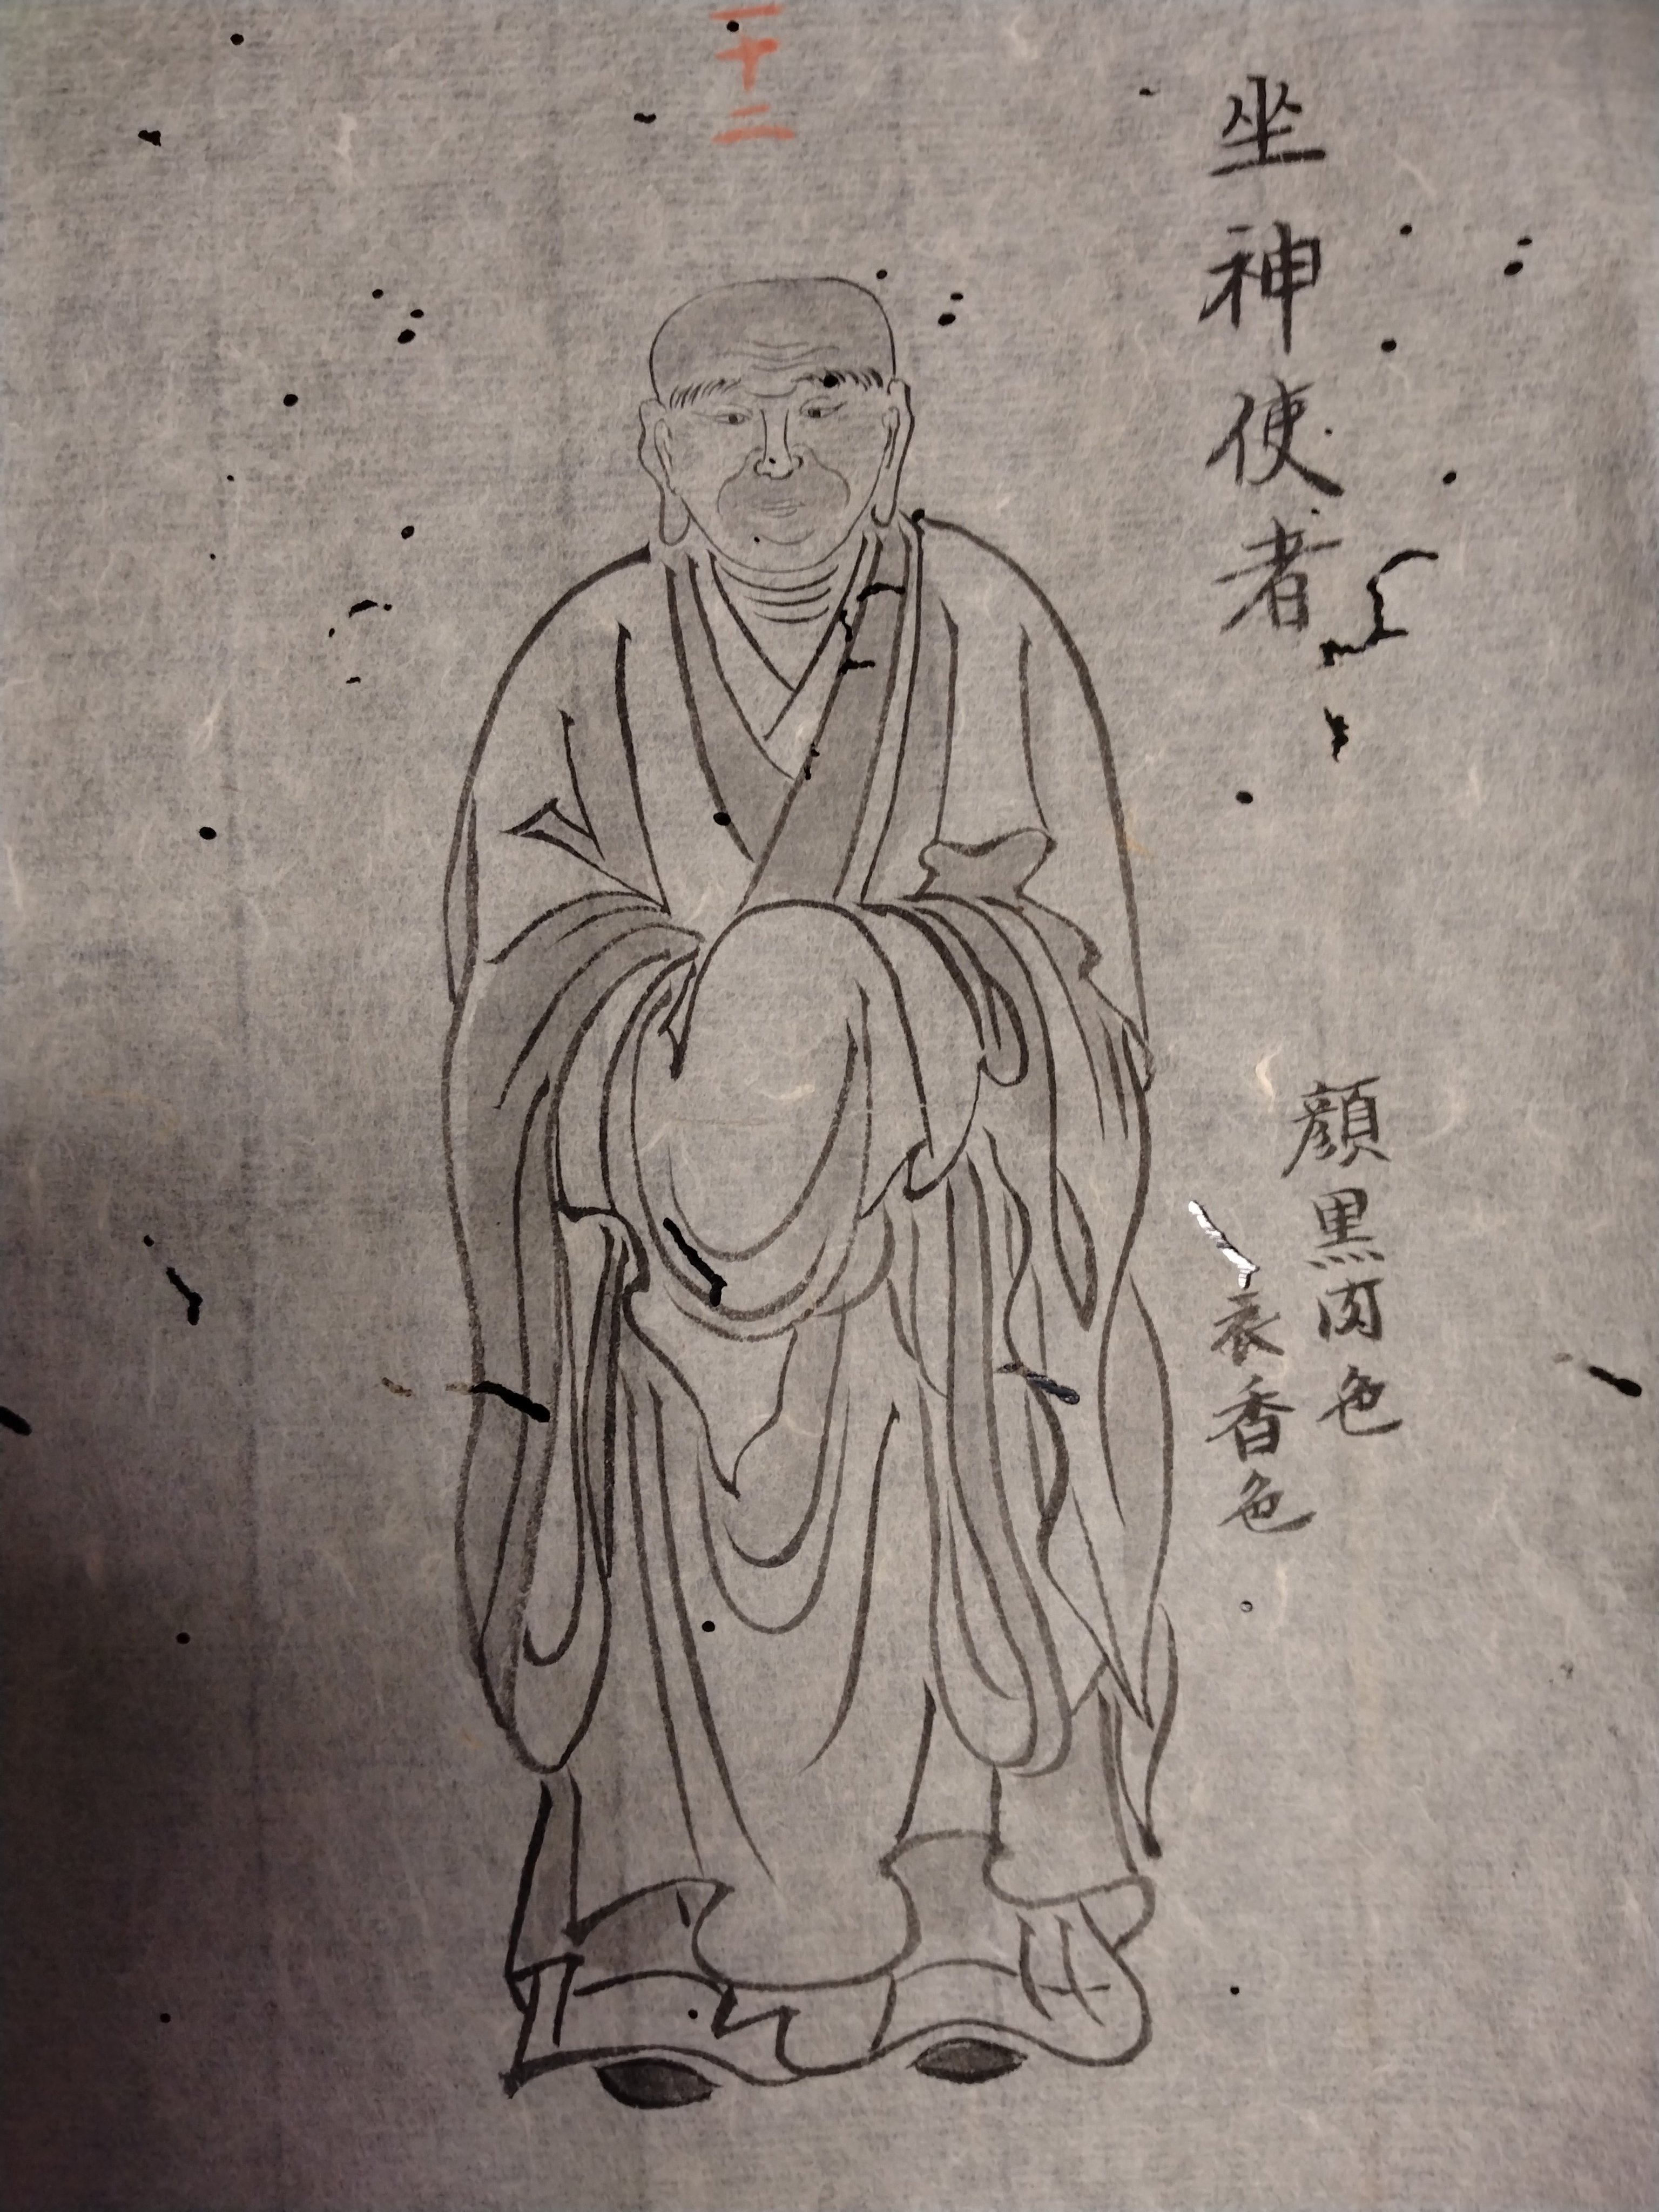 十二
坐神使者
顔黒肉色
衣香色